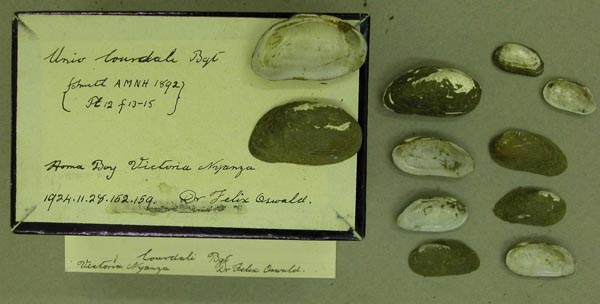 Unio lourdeli Bgt
(Smith AMNH 1892)
( Pt 12 f 13-15 )
Homa Bay Victoria Nyanza
1924.11.28.152.159. Dr Felix Oswald.
lourdeli Bgt
Victoria Nyanza Dr Felix Oswald.